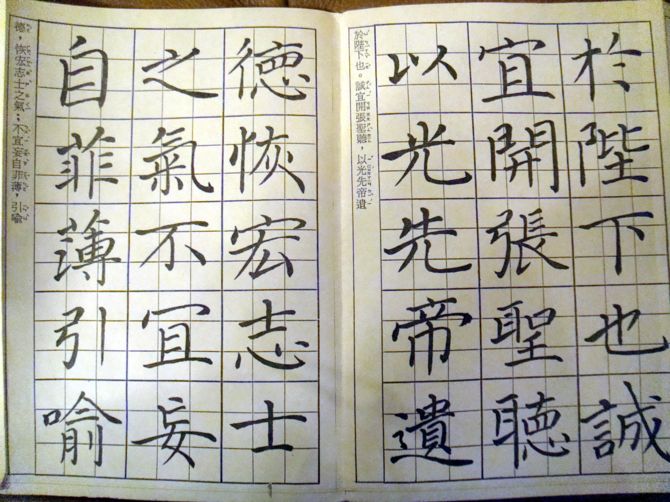 於陛下也誠
宜開張聖聽
以光先帝遺
於陛下也。誠宜開張聖聽，以光先帝遺
德恢宏志士
之氣不冝妄
自菲薄引喻
德，恢宏志士之氣；不宜妄自菲薄，引喻